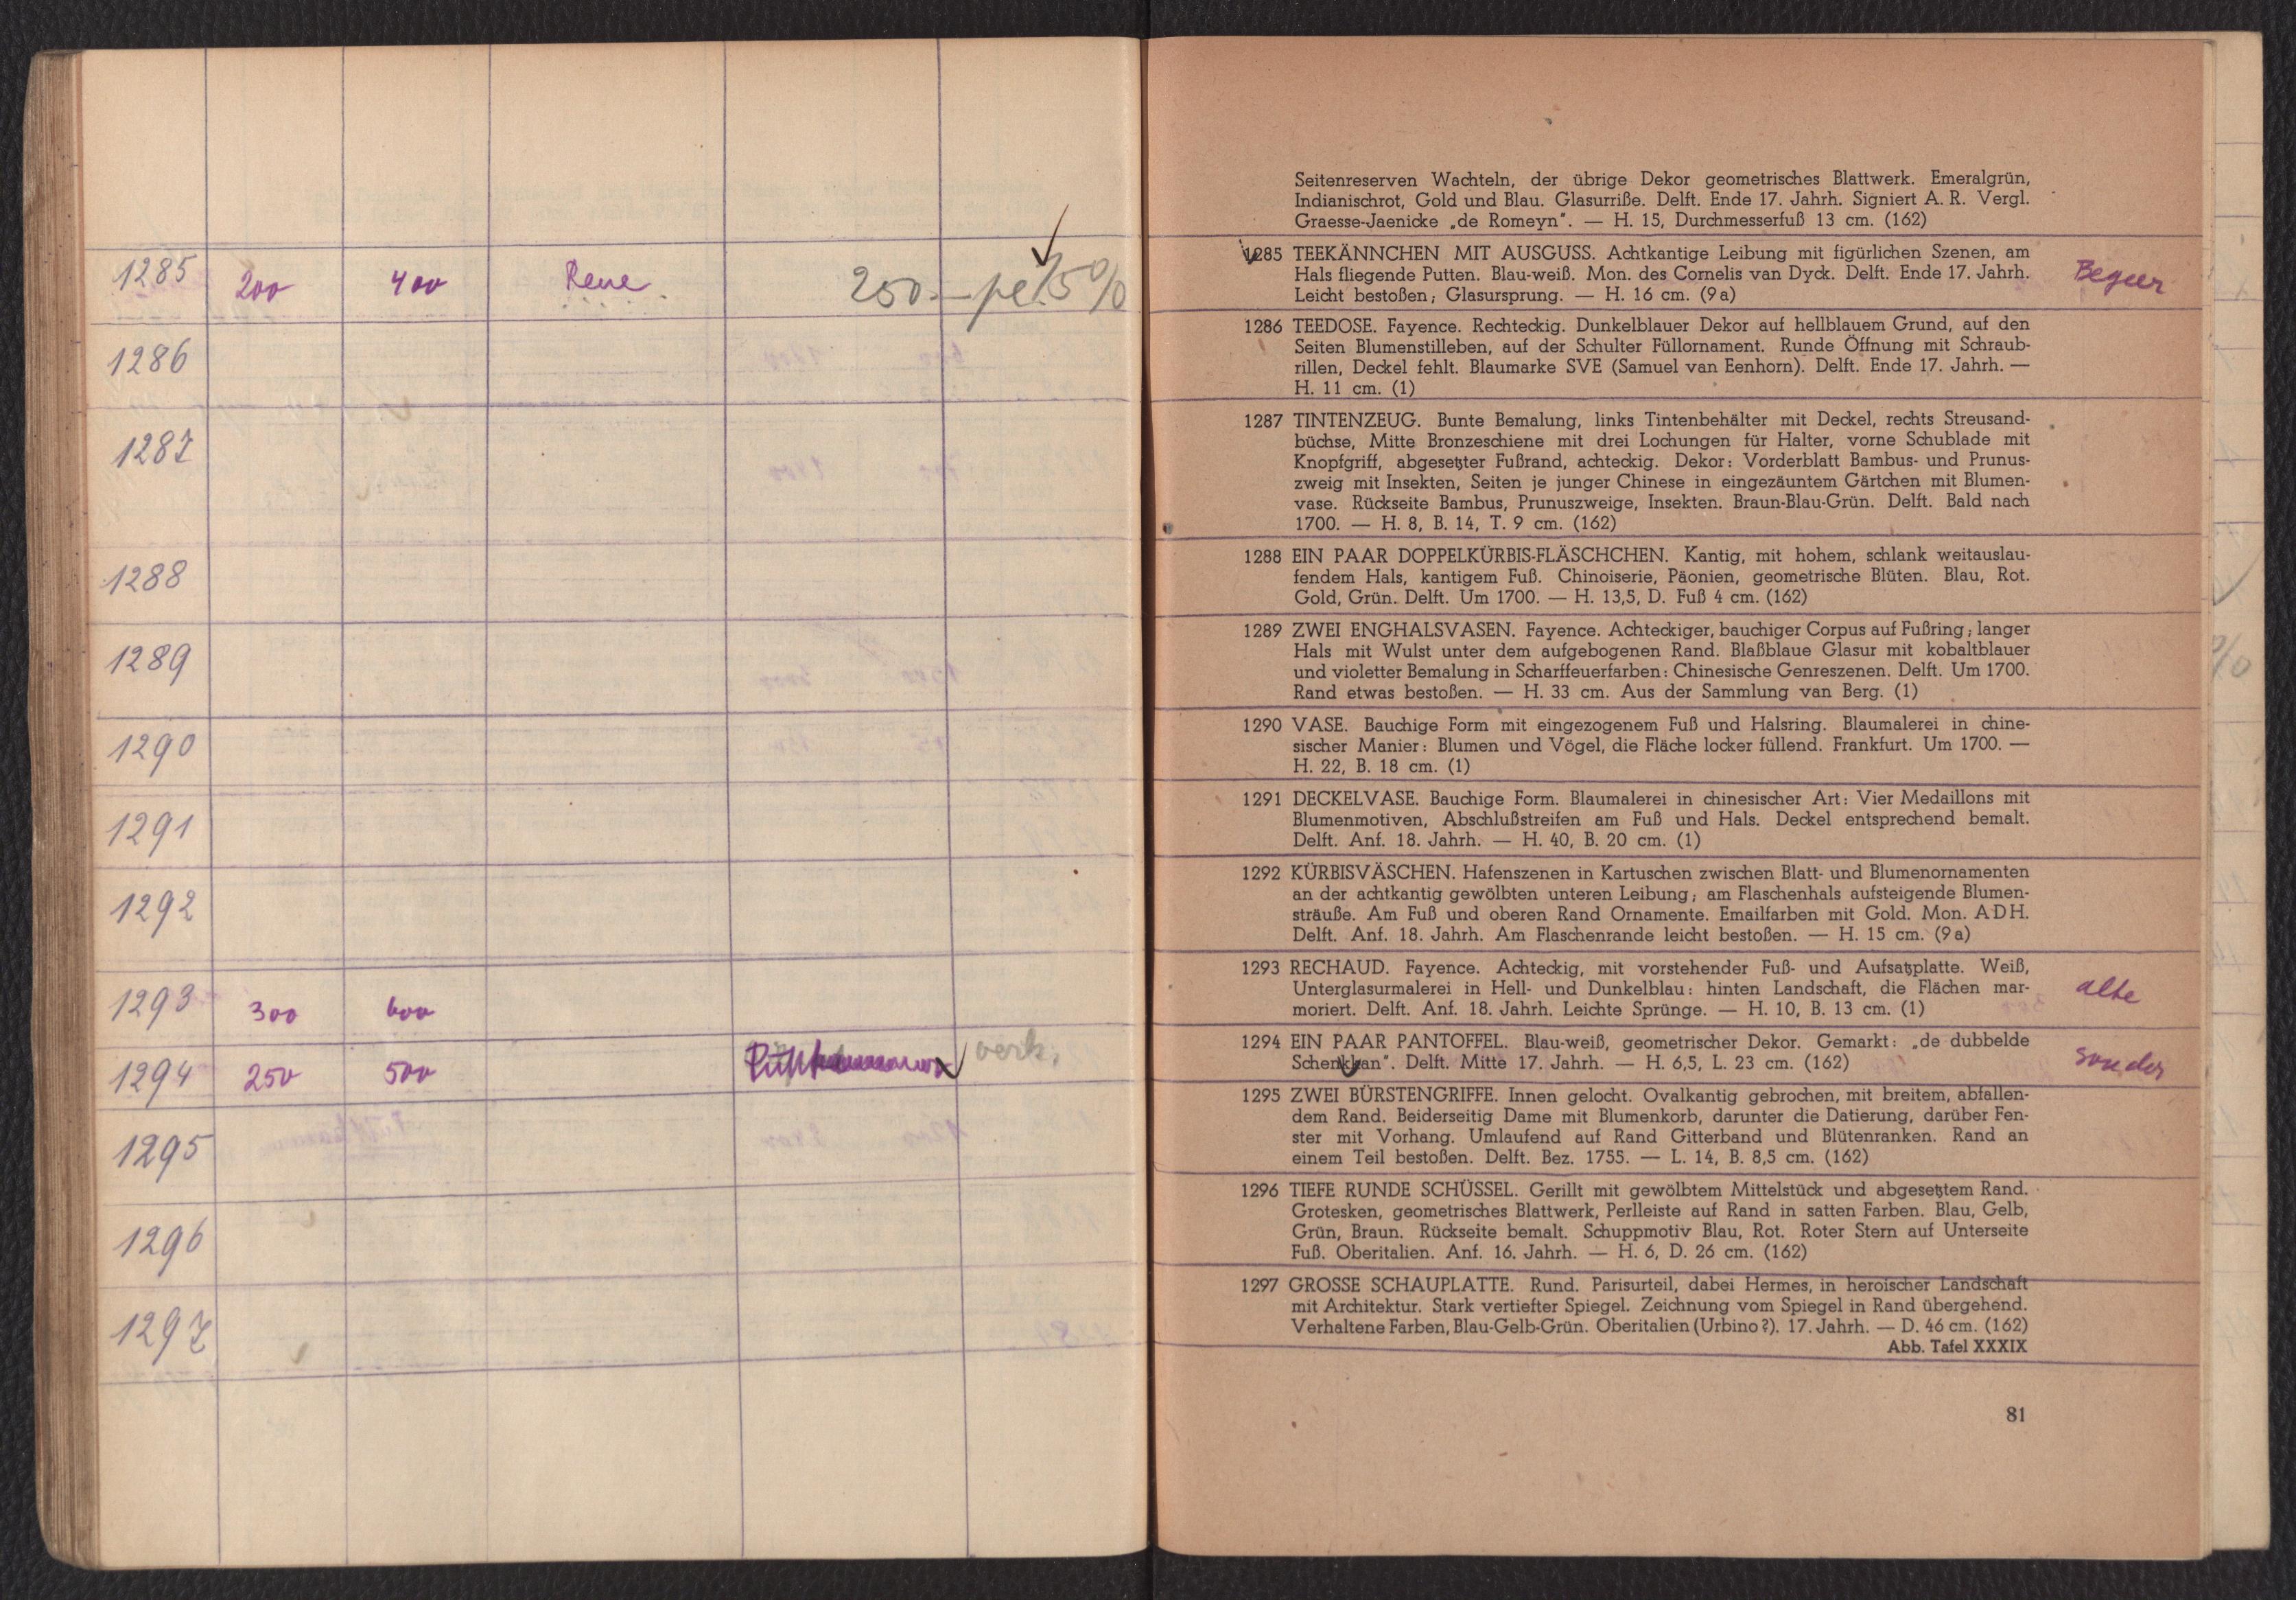 1285 200 400 250.-
1286
1287
1288
1289
1290
1291
1292
1293 300 600
1294 250 500 verk.
1295
1296
1297
Seitenreserven Wachteln, der übrige Dekor geometrisches Blattwerk. Emeralgrün,
Indianischrot, Gold und Blau. Glasurriße. Delft. Ende 17. Jahrh. Signiert A. R. Vergl.
Graesse-Jaenicke „de Romeyn". — H. 15, Durchmesserfuß 13 cm. (162)
1285 TEEKÄNNCHEN MIT AUSGUSS. Achtkantige Leibung mit figürlichen Szenen, am
Hals fliegende Putten. Blau-weiß. Mon. des Cornelis van Dyck. Delft. Ende 17. Jahrh.
Leicht bestoßen; Glasursprung. — H. 16 cm. (9a)
1286 TEEDOSE. Fayence. Rechteckig. Dunkelblauer Dekor auf hellblauem Grund, auf den
Seiten Blumenstilleben, auf der Schulter Füllornament. Runde Öffnung mit Schraub-
rillen, Deckel fehlt. Blaumarke SVE (Samuel van Eenhorn). Delft. Ende 17. Jahrh. —
H. 11 cm. (1)
1287 TINTENZEUG. Bunte Bemalung, links Tintenbehälter mit Deckel, rechts Streusand-
büchse, Mitte Bronzeschiene mit drei Lochungen für Halter, vorne Schublade mit
Knopfgriff, abgesetzter Fußrand, achteckig. Dekor: Vorderblatt Bambus- und Prunus-
zweig mit Insekten, Seiten je junger Chinese in eingezäuntem Gärtchen mit Blumen-
vase. Rückseite Bambus, Prunuszweige, Insekten. Braun-Blau-Grün. Delft. Bald nach
1700. — H. 8, B. 14, T. 9 cm. (162)
1288 EIN PAAR DOPPELKÜRBIS-FLÄSCHCHEN. Kantig, mit hohem, schlank weitauslau-
fendem Hals, kantigem Fuß. Chinoiserie, Päonien, geometrische Blüten. Blau, Rot.
Gold, Grün. Delft. Um 1700. — H. 13,5, D. Fuß 4 cm. (162)
1289 ZWEI ENGHALSVASEN. Fayence. Achteckiger, bauchiger Corpus auf Fußring; langer
Hals mit Wulst unter dem aufgebogenen Rand. Blaßblaue Glasur mit kobaltblauer
und violetter Bemalung in Scharffeuerfarben: Chinesische Genreszenen. Delft. Um 1700.
Rand etwas bestoßen. — H. 33 cm. Aus der Sammlung van Berg. (1)
1290 VASE. Bauchige Form mit eingezogenem Fuß und Halsring. Blaumalerei in chine-
sischer Manier: Blumen und Vögel, die Fläche locker füllend. Frankfurt. Um 1700. —
H. 22, B. 18 cm. (1)
1291 DECKELVASE. Bauchige Form. Blaumalerei in chinesischer Art: Vier Medaillons mit
Blumenmotiven, Abschlußstreifen am Fuß und Hals. Deckel entsprechend bemalt.
Delft. Anf. 18. Jahrh. — H. 40, B. 20 cm. (1)
1292 KÜRBISVÄSCHEN. Hafenszenen in Kartuschen zwischen Blatt- und Blumenornamenten
an der achtkantig gewölbten unteren Leibung; am Flaschenhals aufsteigende Blumen-
sträuße. Am Fuß und oberen Rand Ornamente. Emailfarben mit Gold. Mon. ADH.
Delft. Anf. 18. Jahrh. Am Flaschenrande leicht bestoßen. — H. 15 cm. (9a)
1293 RECHAUD. Fayence. Achteckig, mit vorstehender Fuß- und Aufsatzplatte. Weiß,
Unterglasurmalerei in Hell- und Dunkelblau: hinten Landschaft, die Flächen mar- alte
moriert. Delft. Anf. 18. Jahrh. Leichte Sprünge. — H. 10, B. 13 cm. (1)
1294 EIN PAAR PANTOFFEL. Blau-weiß, geometrischer Dekor. Gemarkt: „de dubbelde
Schenkkan". Delft. Mitte 17. Jahrh. — H. 6,5, L. 23 cm. (162)
1295 ZWEI BÜRSTENGRIFFE. Innen gelocht. Ovalkantig gebrochen, mit breitem, abfallen-
dem Rand. Beiderseitig Dame mit Blumenkorb, darunter die Datierung, darüber Fen-
ster mit Vorhang. Umlaufend auf Rand Gitterband und Blütenranken. Rand an
einem Teil bestoßen. Delft. Bez. 1755. — L. 14, B. 8,5 cm. (162)
1296 TIEFE RUNDE SCHÜSSEL. Gerillt mit gewölbtem Mittelstück und abgesetztem Rand.
Grotesken, geometrisches Blattwerk, Perlleiste auf Rand in satten Farben. Blau, Gelb,
Grün, Braun. Rückseite bemalt. Schuppmotiv Blau, Rot. Roter Stern auf Unterseite
Fuß. Oberitalien. Anf. 16. Jahrh. — H. 6, D. 26 cm. (162)
1297 GROSSE SCHAUPLATTE. Rund. Parisurteil, dabei Hermes, in heroischer Landschaft
mit Architektur. Stark vertiefter Spiegel. Zeichnung vom Spiegel in Rand übergehend.
Verhaltene Farben, Blau-Gelb-Grün. Oberitalien (Urbino?). 17. Jahrh. — D. 46 cm. (162)
Abb. Tafel XXXIX
81